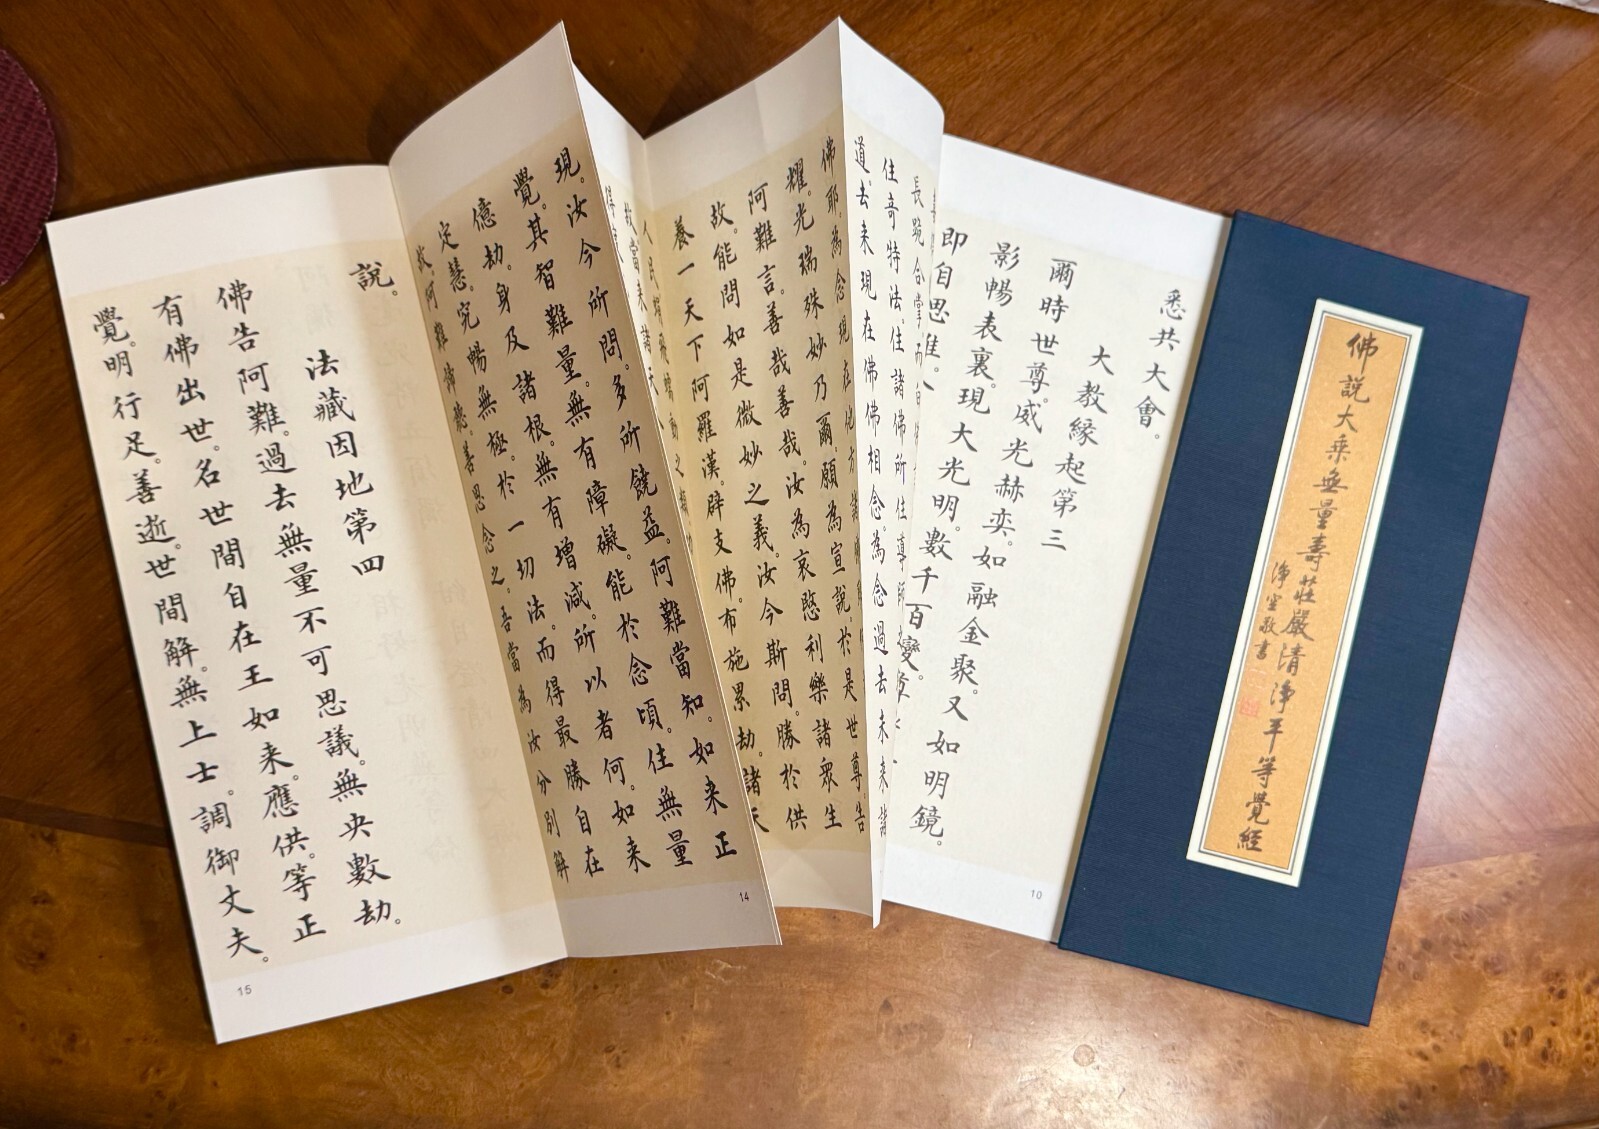 佛説大乘無量壽莊嚴清淨平等覺經
淨空敬書
悉共大會。
大教緣起第三
爾時世尊。威光赫奕。如融金聚。又如明
影暢表裏。現大光明。數千百變。
即自思惟。
鏡。
10
長跪合掌
住奇特法住諸佛所住導師
道。去来現在佛佛相念。為念過去未来諸
佛耶。為念現在他方
耀。光瑞殊妙乃爾。願為宣説。於是世尊。告
阿難言。善哉善哉。汝為哀愍利樂諸眾生
故。能問如是微妙之義。汝今斯問。勝於供
養一天下阿羅漢。辟支佛。布施累劫。諸天
人民蜎飛蠕動之類
故。當来諸天人
現。汝今所問。多所饒益。阿難當知。如来正
覺。其智難量。無有障礙。能於念頃。住無量
億劫。身及諸根。無有增減。所以者何。如来
定慧。究暢無極。於一切法。而得最勝自在
故。阿難諦聽。善思念之。吾當為汝分別解
14
説。
法藏因地第四
佛告阿難。過去無量不可思議。無央數劫。
有佛出世。名世間自在王如来。應供。等正
覺。明行足。善逝。世間解。無上士。調御丈夫。
15